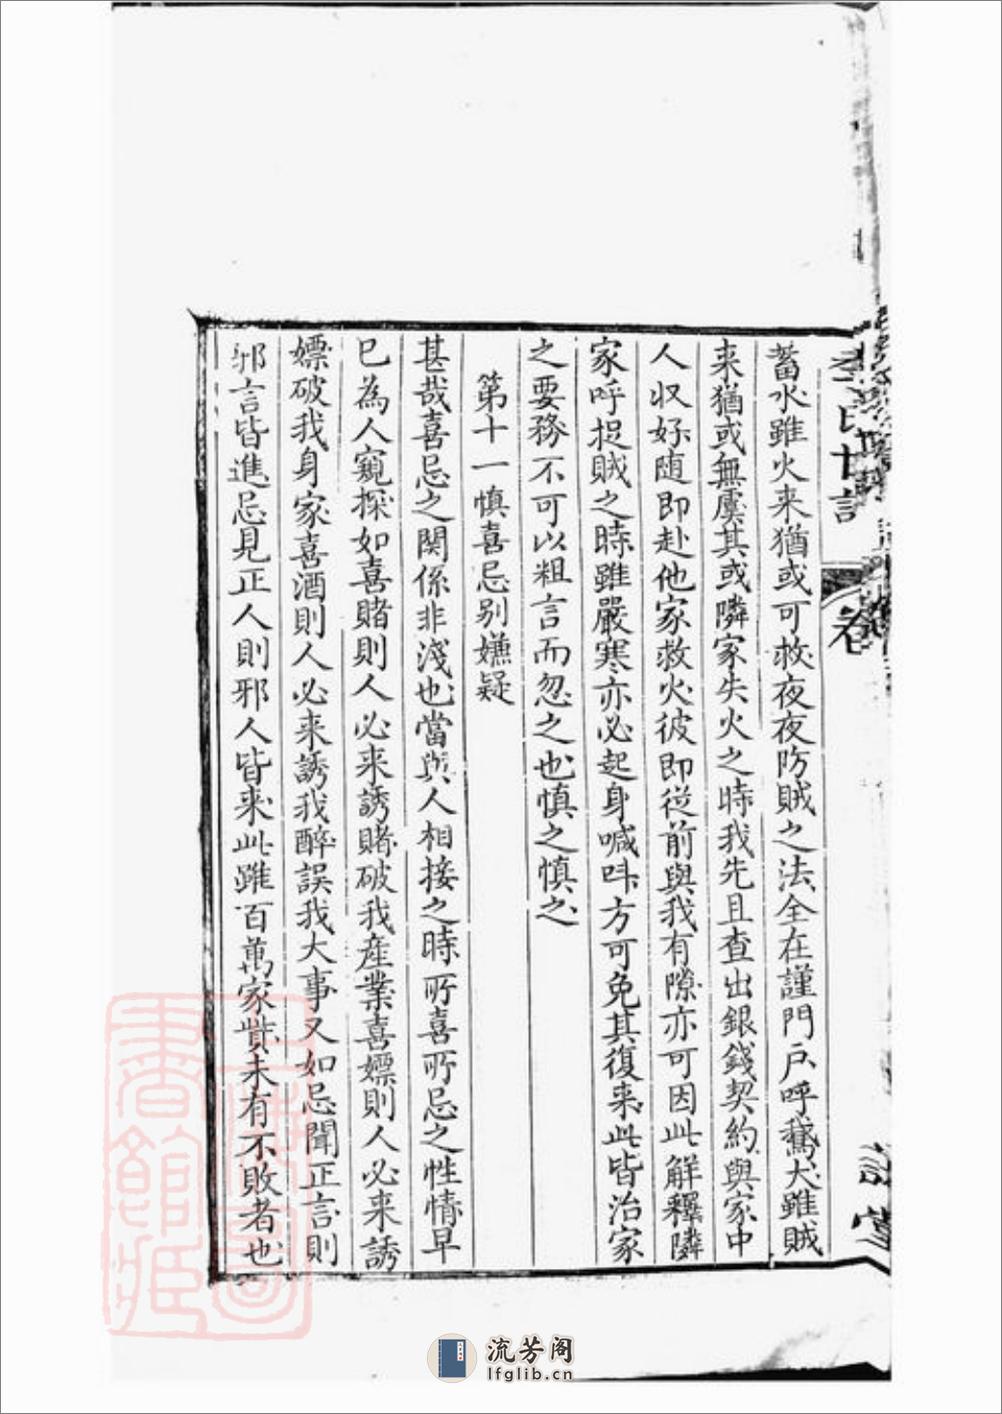 蓄水雖火来猶或可救夜夜防賊之法全在謹門戶呼鵞犬雖賊
来猶或無虞其或隣家失火之時我先且查出銀錢契約與家中
人収好随即赴他家救火彼即從前與我有隙亦可因此解釋隣
家呼捉賊之時雖嚴寒亦必起身喊呌方可免其復来此皆治家
之要務不可以粗言而忽之也慎之慎之
第十一慎喜忌别嫌疑
甚哉喜忌之関係非淺也當與人相接之時所喜所忌之性情早
已為人窺探如喜賭則人必来誘賭破我產業喜嫖則人必来誘
嫖破我身家喜酒則人必来誘我醉誤我大事又如忌聞正言則
邪言皆進忌見正人則邪人皆来此雖百萬家貲未有不敗者也
流芳阁
lfglib.cn